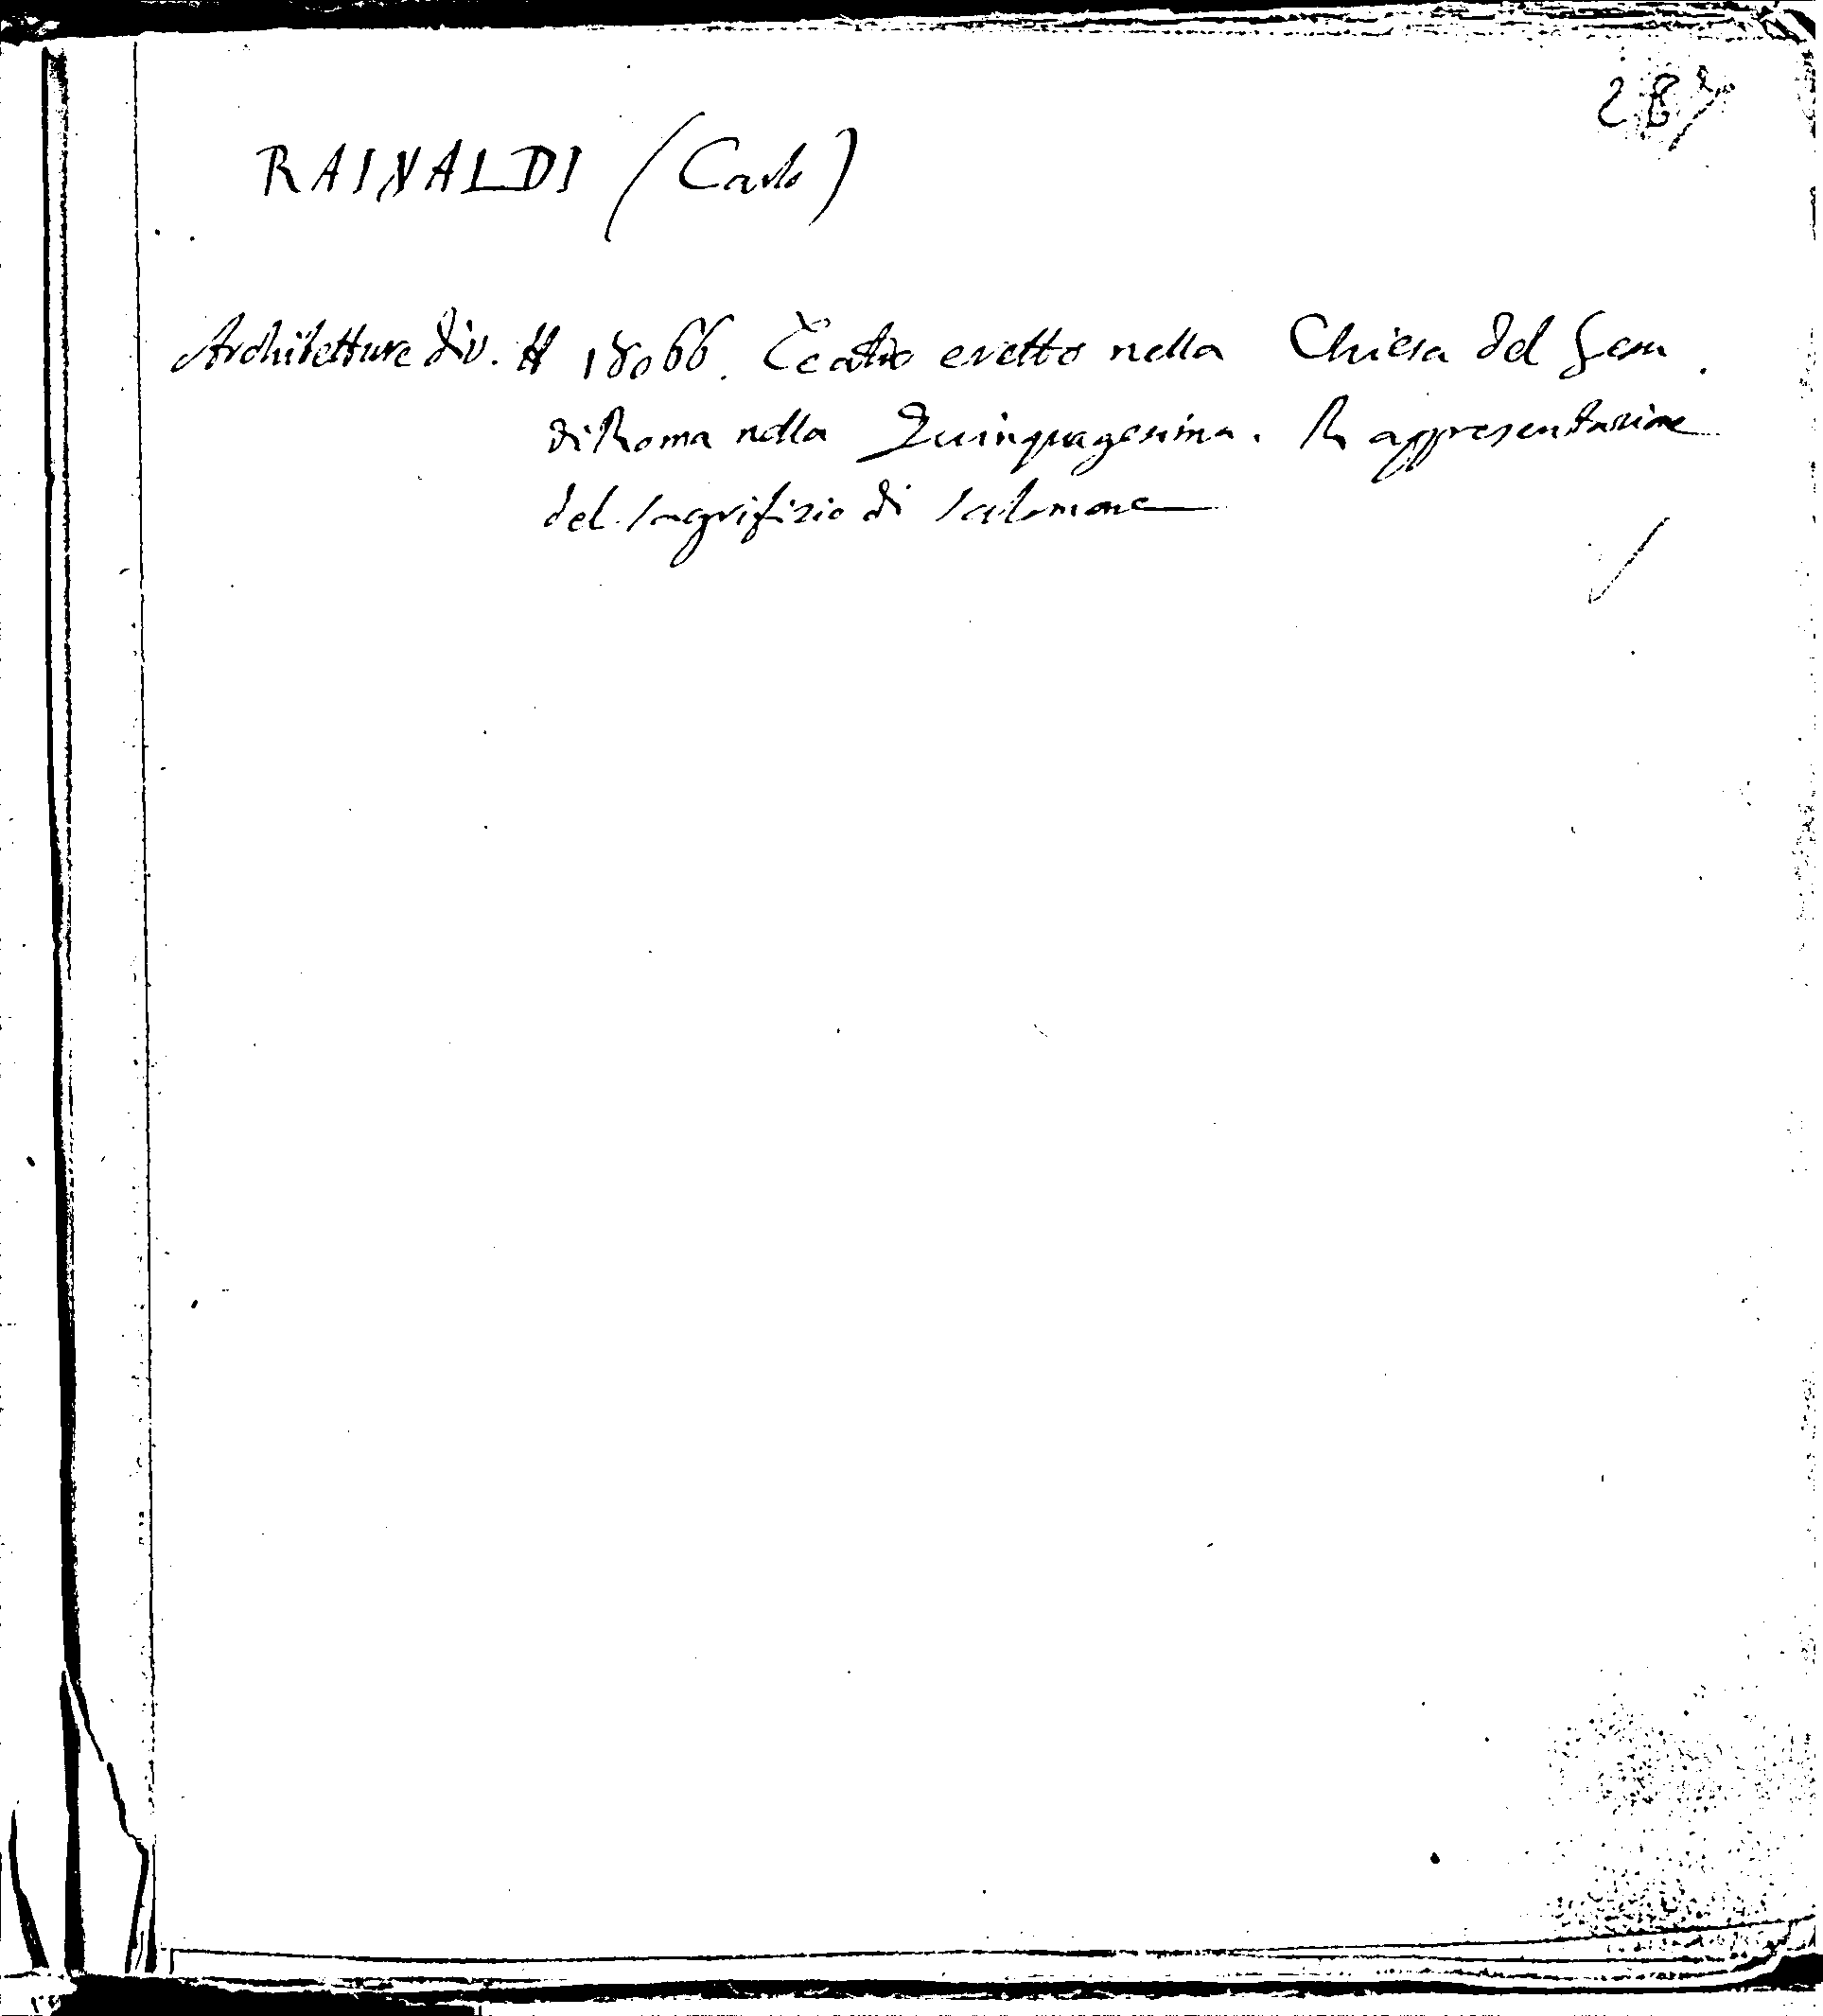 287
RAINALDI (Carlo)
Architetture div. H 18066. Teatro eretto nella Chiesa del Gesu
di Roma nella Quinquagesima. Rappresentazione
del sagrifizio di Salomone